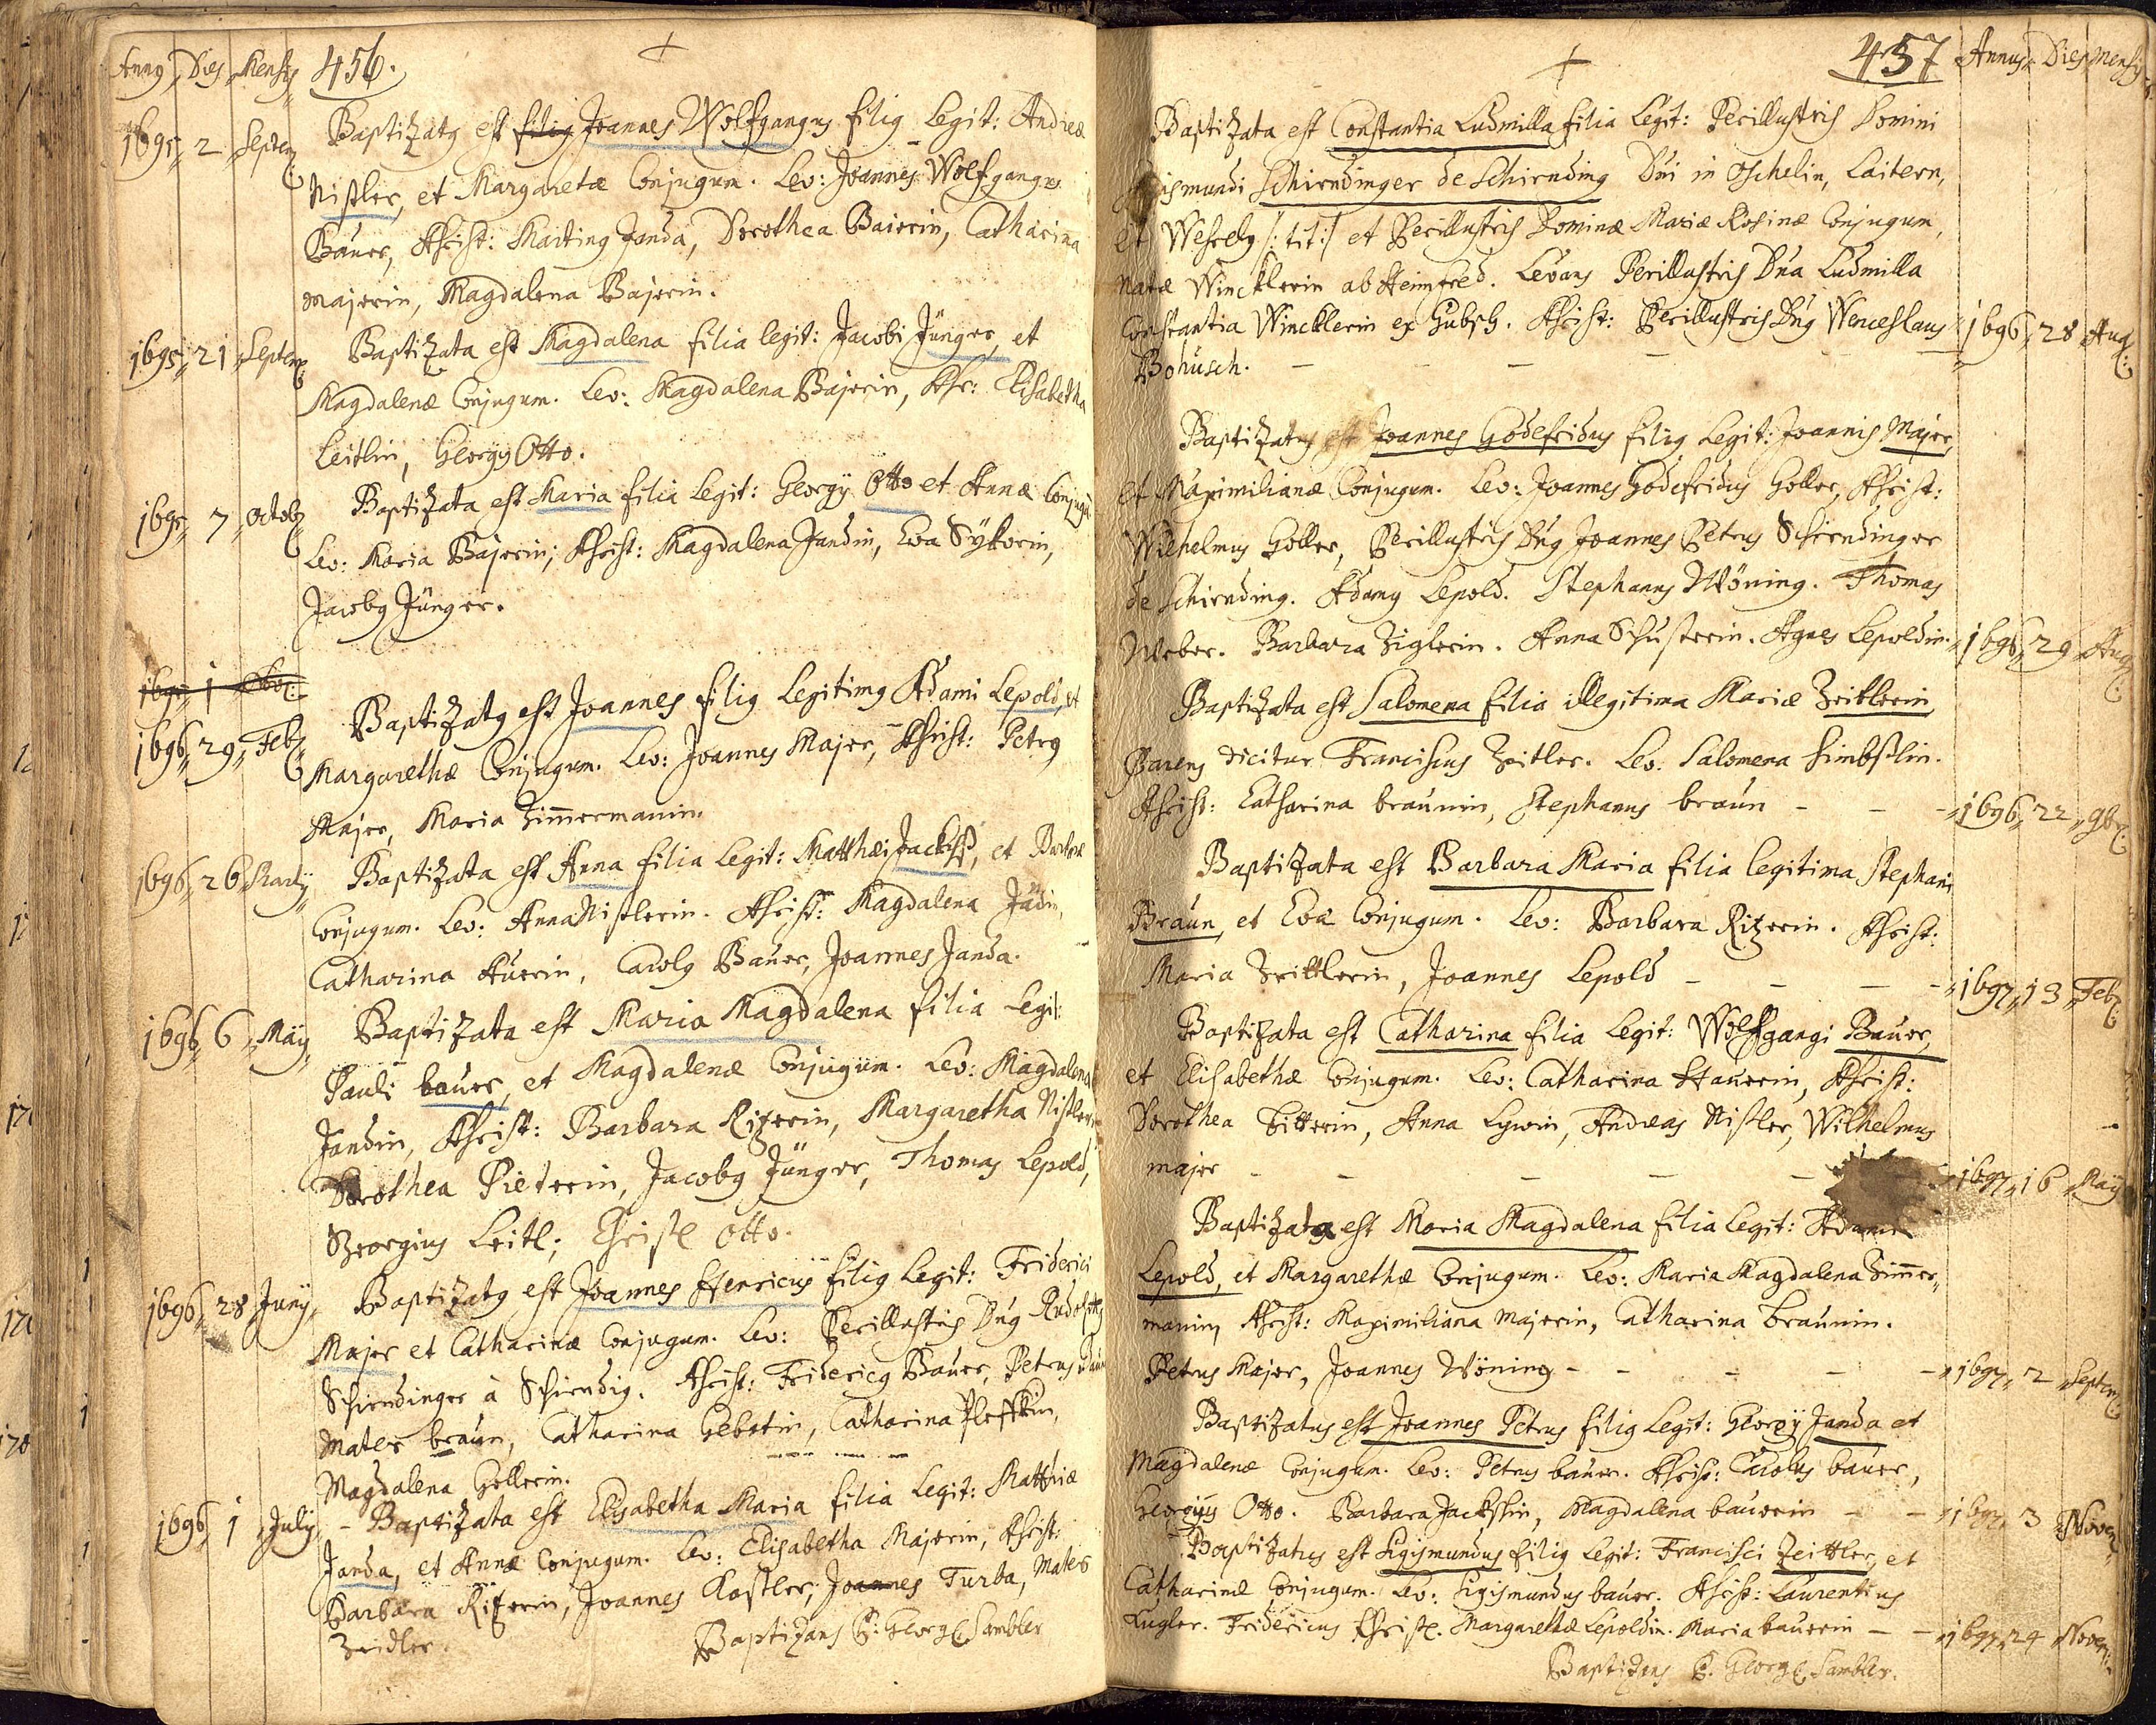 Annus Dies Mensis 456.
1695 2 Septem: Baptizatus est filius Joannes Wolfgangus filius Legit: Andreæ
Nistler, et Margaretæ Conjugum. Lev: Joannes Wolfgangus
Bauer, Assist: Martinus Janda, Dorothea Baierin, Catharina
Majerin, Magdalena Bajerin.
1695 21 Septem: Baptizata est Magdalena filia legit: Jacobi Jünger, et
Magdalenæ Conjugum. Lev: Magdalena Bajerin, Ass: Elisabetha
Leitlin, Georgy Otto.
1695 7 Octob: Baptizata est Maria filia Legit: Georgy Otto et Annæ Conjugum
Lev: Maria Bajerin; Assist: Magdalena Jandin, Eva Sykorin,
Jacobus Jünger.
1695 1
1696 29 Feb: Baptizatus est Joannes filius Legitimus Adami Lepold, et
Margarethæ Conjugum. Lev: Joannes Majer, Assist: Petrus
Majer, Maria Zimmermanin.
1696 26 Marty Baptizata est Anna filia Legit: Matthæi Jackhl, et Barbaræ
Conjugum. Lev: Anna Nistlerin. Assist: Magdalena Jüdin,
Catharina Auerin, Carolus Bauer, Joannes Janda.
1696 6 May Baptizata est Maria Magdalena filia Legit:
Pauli bauer, et Magdalenæ Conjugum. Lev: Magdalena
Jandin, Assist: Barbara Ritzerin, Margaretha Nistlerin
Dorothea Pieterin, Jacobus Jünger, Thomas Lepold,
Georgius Leitl; Christl Otto.
1696 28 Juny Baptizatus est Joannes Henricus filius Legit: Friderici
Majer et Catharinæ Conjugum. Lev: Perillustris Dnus Rudolphus
Schirndinger à Schirndig. Assist: Fridericus Bauer, Petrus Bauer
Mates braun, Catharina Gebertin, Catharina Pleffkin,
Magdalena Gollerin.
1696 1 July - Baptizata est Elisabetha Maria filia Legit: Matthiæ
Janda, et Annæ Conjugum. Lev: Elisabetha Majerin, Assist:
Barbara Ritzerin, Joannes Kastler, Joannes Turba, Mates
Zeidler. Baptizans P: Georg Sambler
457 Annus Dies Mensis
Baptizata est Constantia Ludmilla filia Legit: Perillustris Domini
Sigismundi Schirndinger de Schirnding Dni in Oschelin, Laitern,
et Wessely /: tit:/ et Perillustris Dominæ Mariæ Rosinæ Conjugum,
Natæ Wincklerin ab Heimfeed. Levans Perillustris Dna Ludmilla
Constantia Wincklerin ex Hubsch. Assist: Perillustris Dnus Wenceslaus
Bohusch. - - - 1696 28 Aug:
Baptizatus est Joannes Godefridus filius Legit: Joannis Majer,
et Maximilianæ Conjugum. Lev: Joannes Godefridus Goller, Assist:
Wilhelmus Goller, Perillustris Dnus Joannes Petrus Schirndinger
de Schirnding. Adamus Lepold. Stephanus Wöning. Thomas
Weber. Barbara Ziglerin. Anna Schusterin. Agnes Lepoldin. 1696 29 Aug:
Baptizata est Salomena filia illegitima Mariæ Zeitlerin,
Parens dicitur Franciscus Zeitler. Lev: Salomena Simbstlin.
Assist: Catharina braunin, Stephanus braun - - 1696 22 9br:
Baptizata est Barbara Maria filia legitima Stephani
Braun, et Evæ Conjugum. Lev: Barbara Ritzerin. Assist:
Maria Zeittlerin, Joannes Lepold - - - 1697 13 Feb:
Baptizata est Catharina filia Legit: Wolfgangi Bauer,
et Elisabethæ Conjugum. Lev: Catharina Hauerin, Assist:
Dorothea Bitterin, Anna Lywin, Andreas Nistler, Wilhelmus
majer - - - - 1697 16 May
Baptizata est Maria Magdalena filia Legit: Adami
Lepold, et Margarethæ Conjugum. Lev: Maria Magdalena Zimmer-
manin, Assist: Maximiliana Majerin, Catharina Braunin.
Petrus Majer, Joannes Wöning - - - - 1697 2 Septem:
Baptizatus est Joannes Petrus filius Legit: Georgy Janda et
Magdalenæ Conjugum. Lev: Petrus bauer. Assist: Carolus bauer,
Georgius Otto. Barbara Jackhlin, Magdalena bauerin - - 1697 3 Novem:
Baptizatus est Sigismundus filius Legit: Francisci Zeittler, et
Catharinæ Conjugum. Lev: Sigismundus bauer. Assist: Laurentius
Kugler. Fridericus Christl. Margarethæ Lepoldin. Maria bauerin - - 1697 24 Novem:
Baptizans P. Georg Sambler.